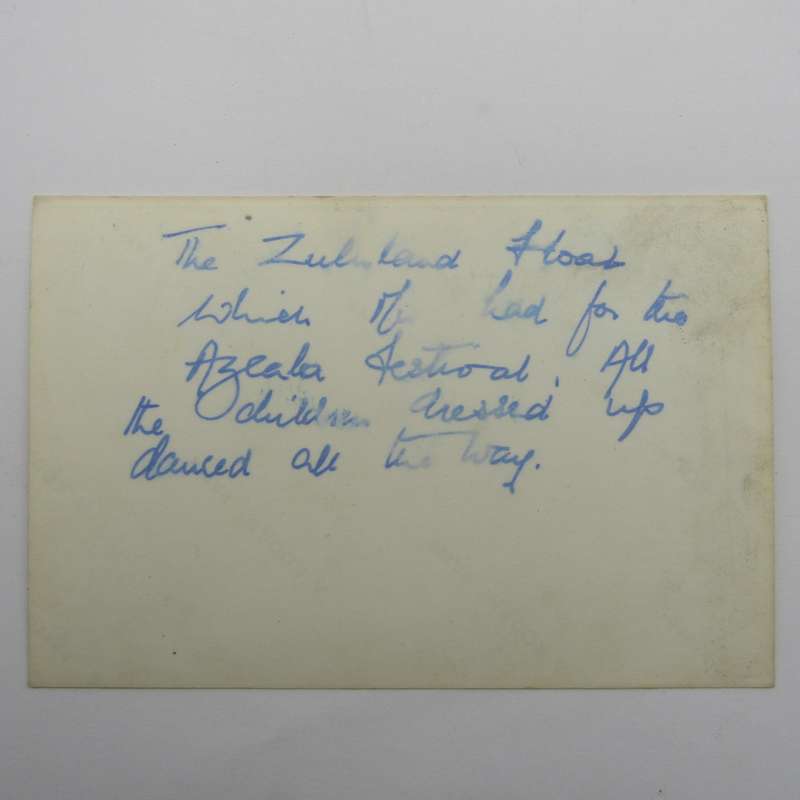 The Zululand Float
which had for the
Azeala Festival. All
the children dressed up
danced all the way.